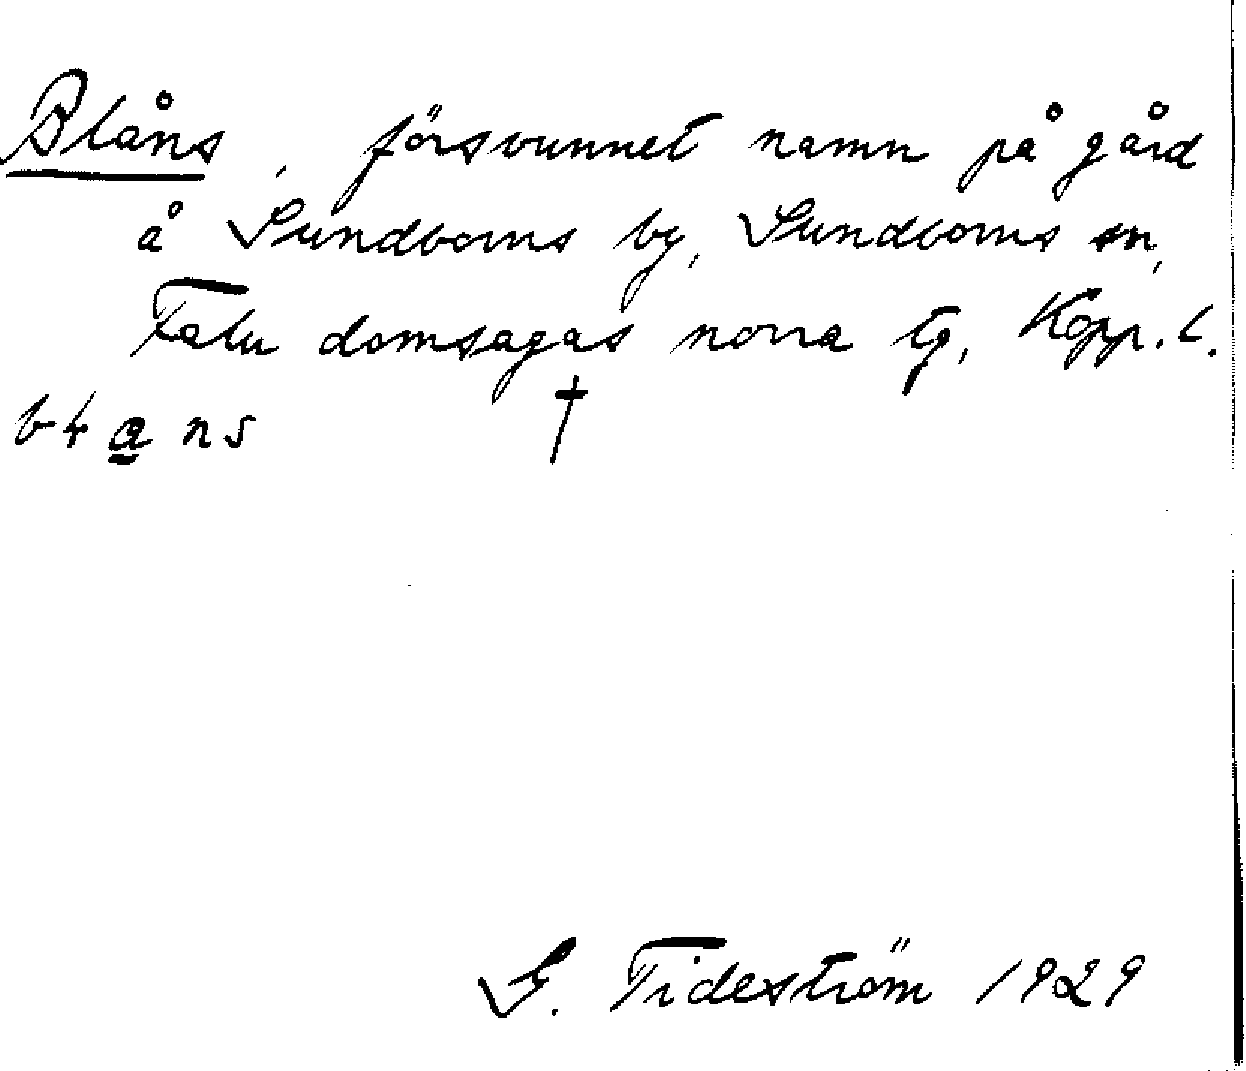 Blåns, försvunnet namn på gård
å Sundborns by, Sundborns sn,
Falu domsagas norra tg, Kopp. l.
blans †
G. Tideström 1929